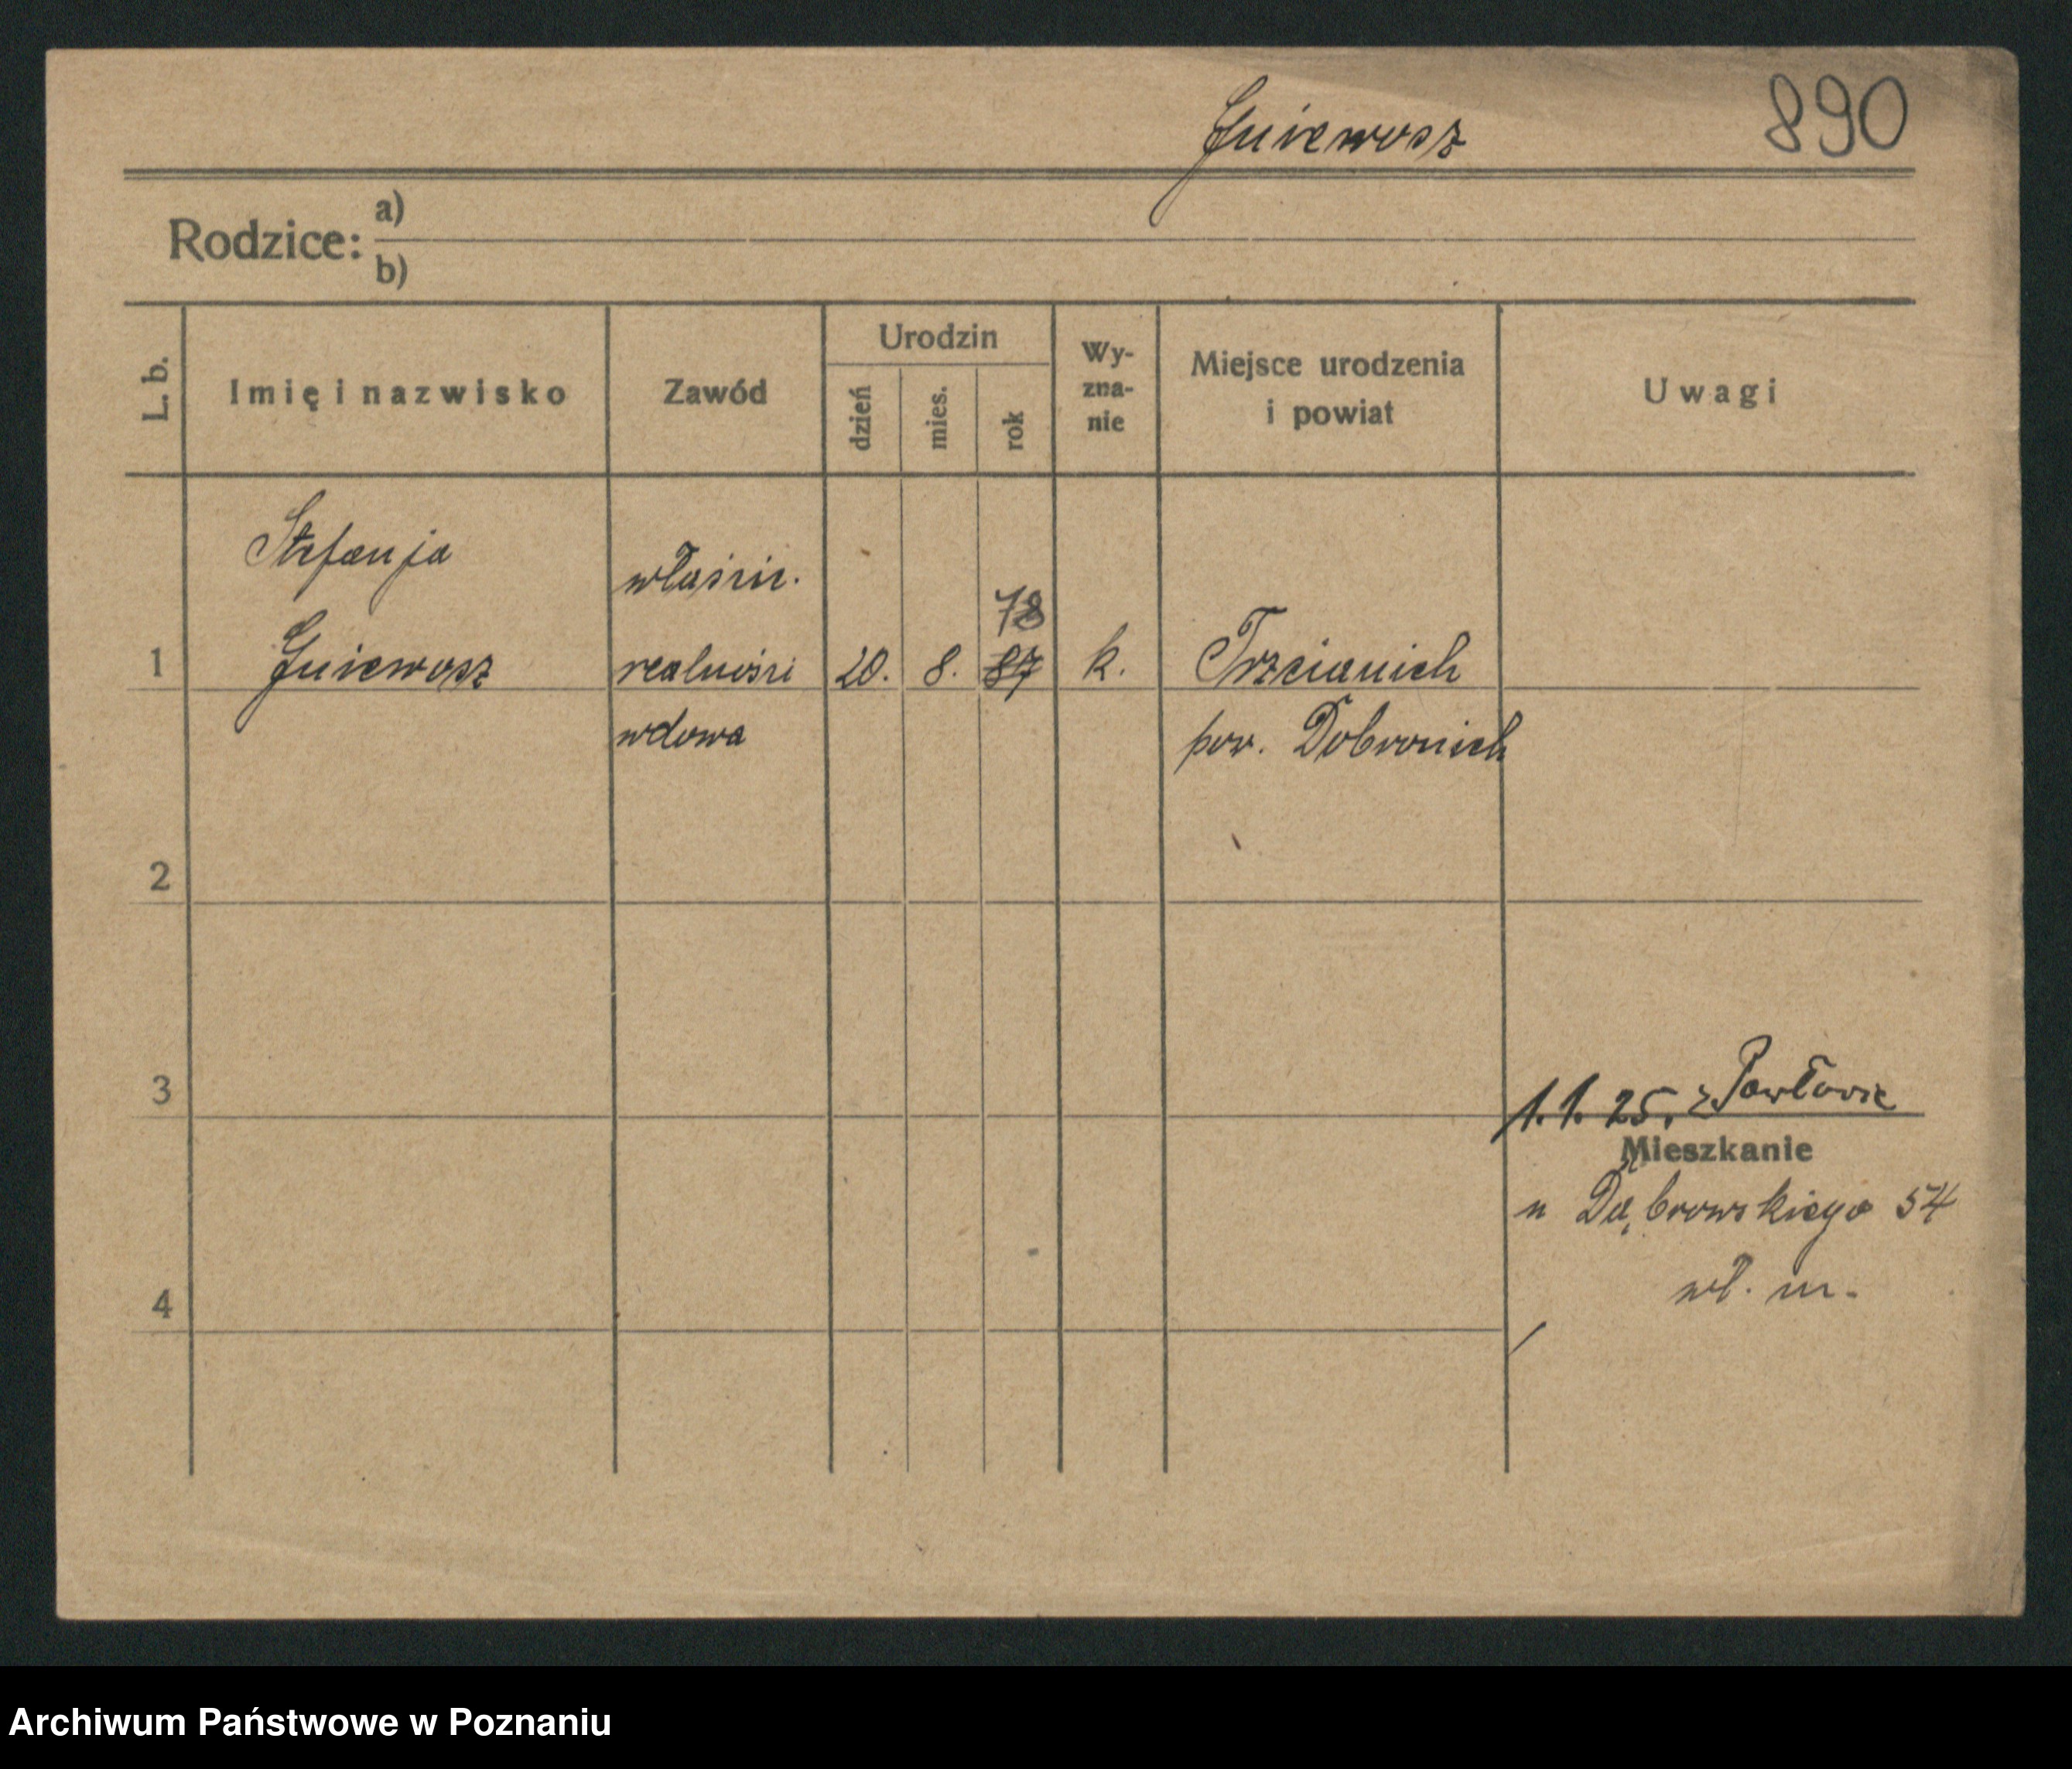 Gniewosz 890
Rodzice: a)
b)
L. b. Imię i nazwisko Zawód Urodzin dzień mies. rok Wy-zna-nie Miejsce urodzenia i powiat Uwagi
Stefanja właścic.
78
1 Gniewosz realności 20. 8. 87 k. Trzcianich
wdowa pow. Dobronich
2
3 1.1.25. z Pawłowic
Mieszkanie
u Dąbrowskiego 54
4 wł. m.
Archiwum Państwowe w Poznaniu